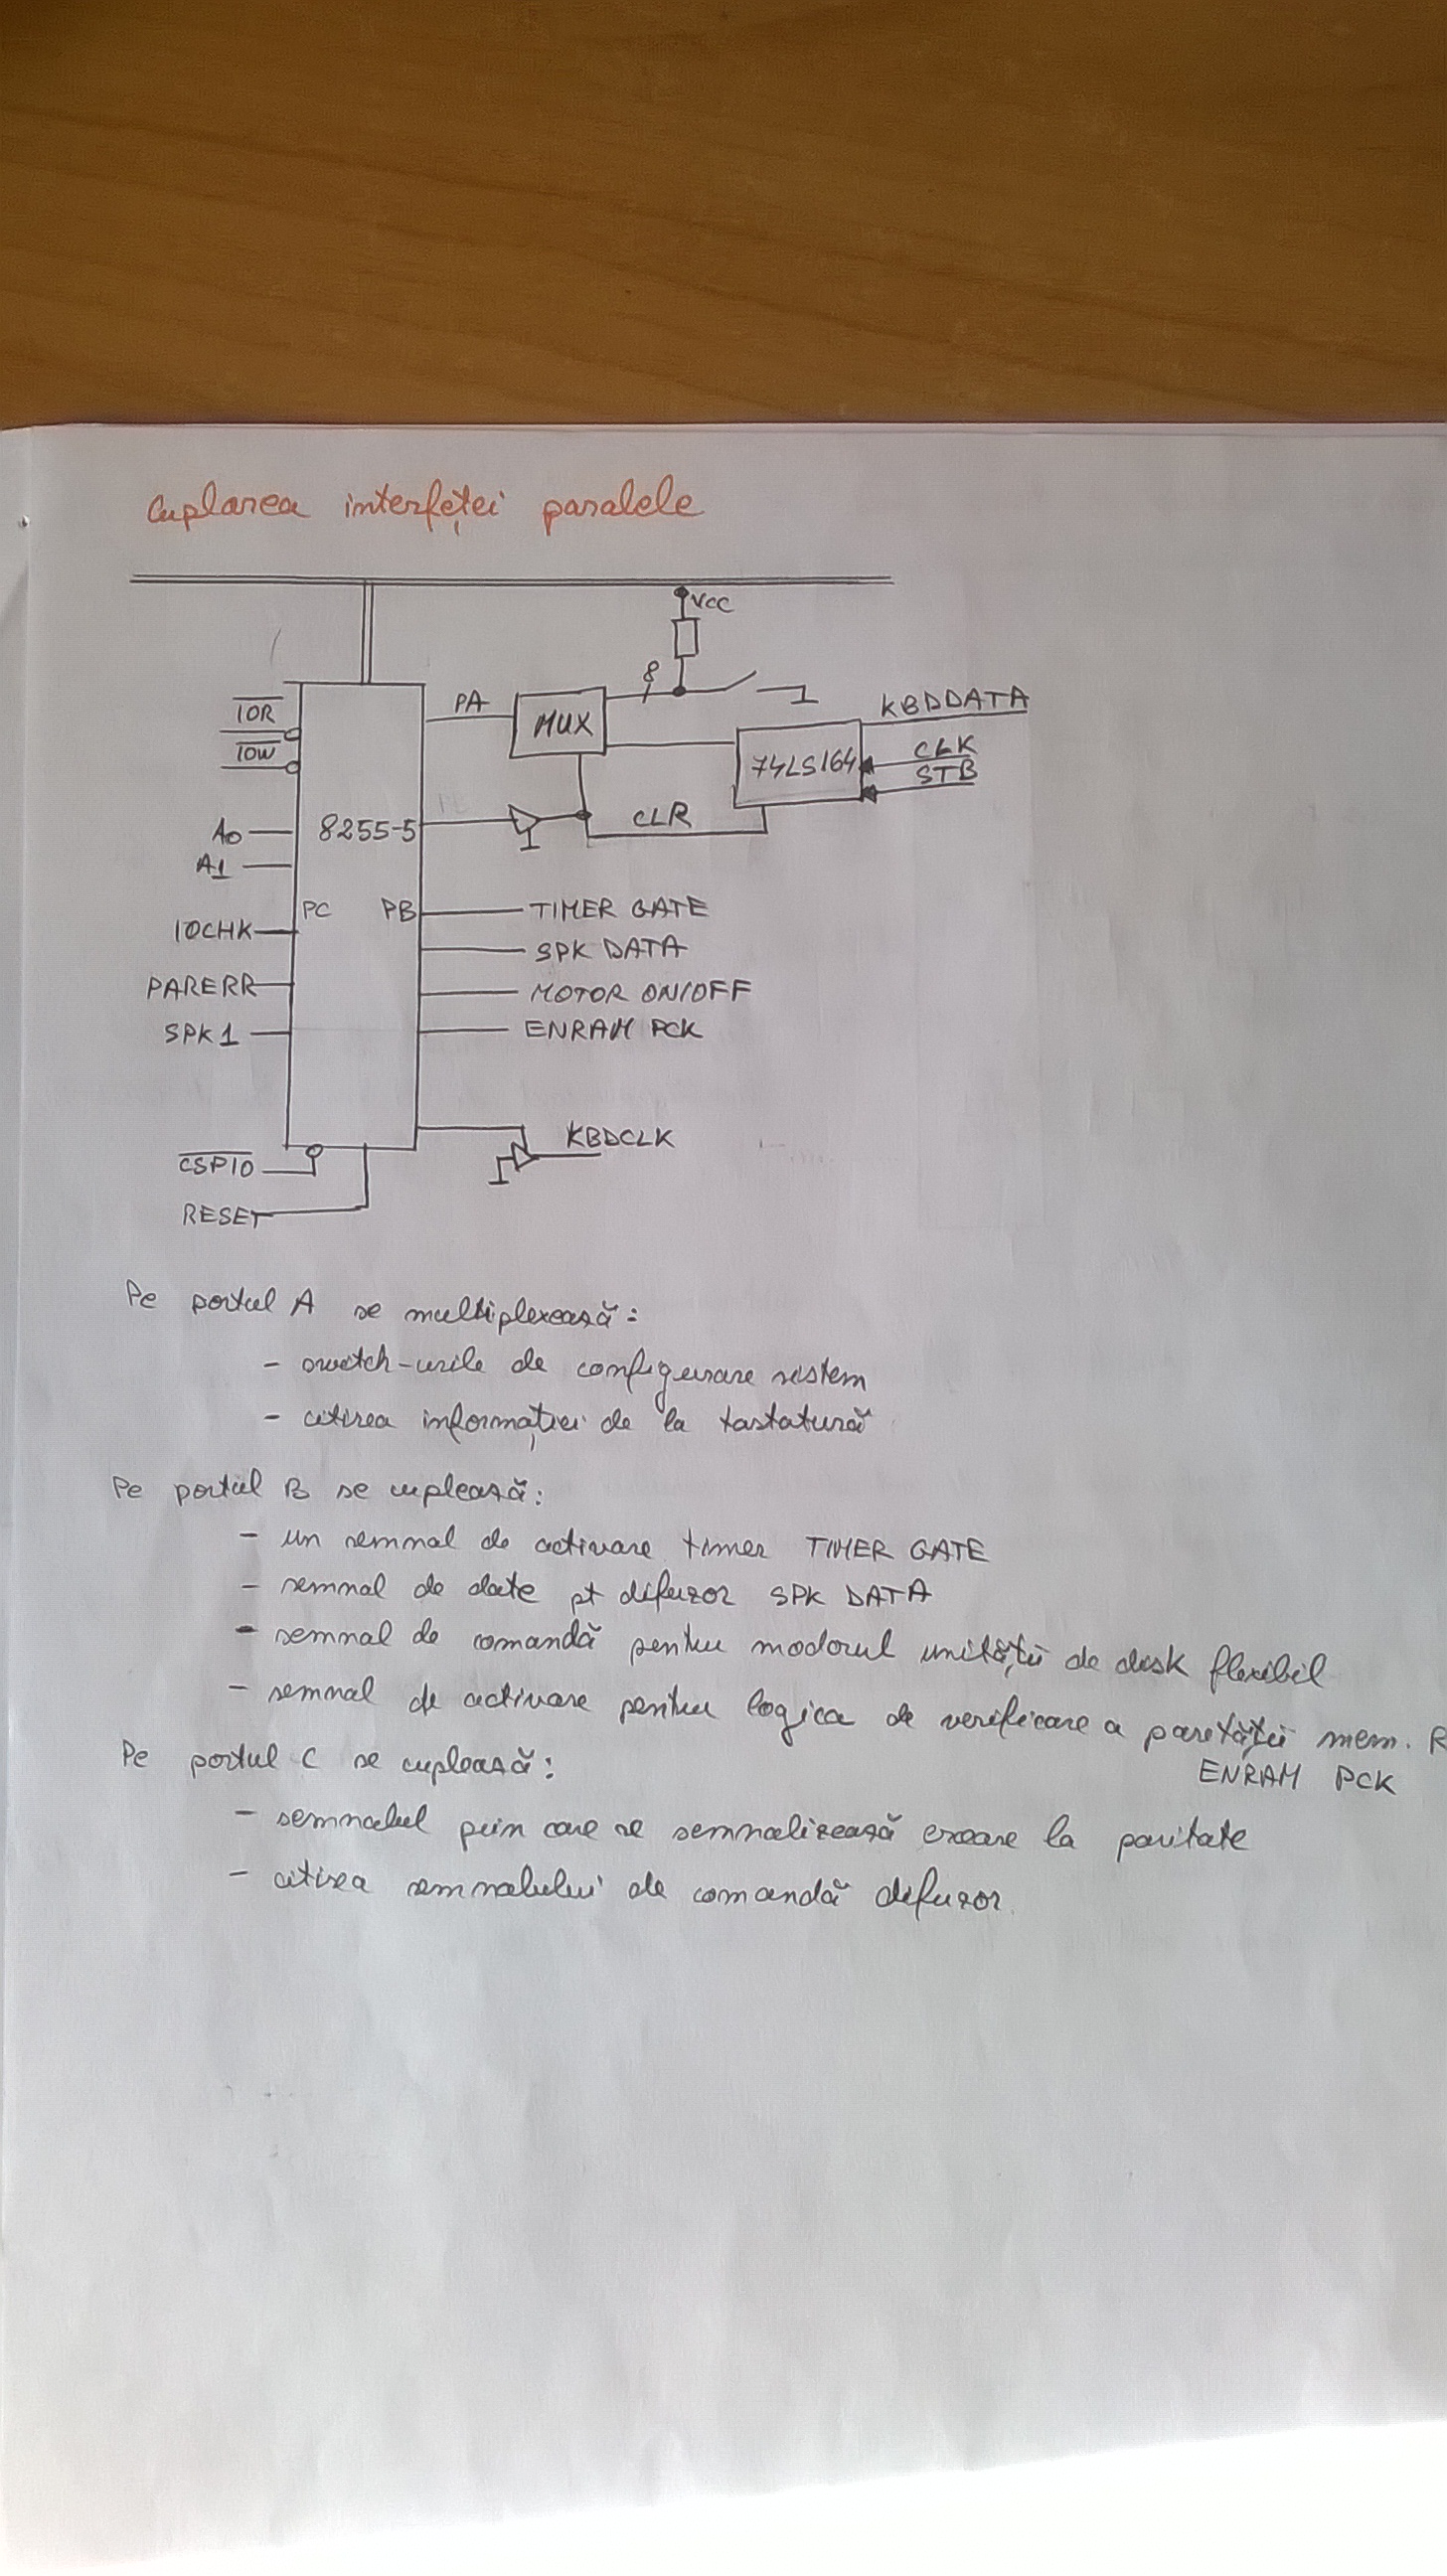 Cuplarea interfeței paralele
VCC
8
PA
MUX
KBDDATA
IOR
IOW
74LS164
CLK
STB
A0
8255-5
CLR
A1
PC PB
TIMER GATE
IOCHK
SPK DATA
PARERR
MOTOR ON/OFF
SPK1
ENRAM PCK
KBDCLK
CSPIO
RESET
Pe portul A se multiplexează:
- switch-urile de configurare sistem
- citirea informației de la tastatură
Pe portul B se cuplează:
- un semnal de activare timer TIMER GATE
- semnal de date pt difuzor SPK DATA
- semnal de comandă pentru modorul unității de disk flexibil
- semnal de activare pentru logica de verificare a parității mem. R
ENRAM PCK
Pe portul C se cuplează:
- semnalul prin care se semnalizează eroare la paritate
- citirea semnalului de comandă difuzor.